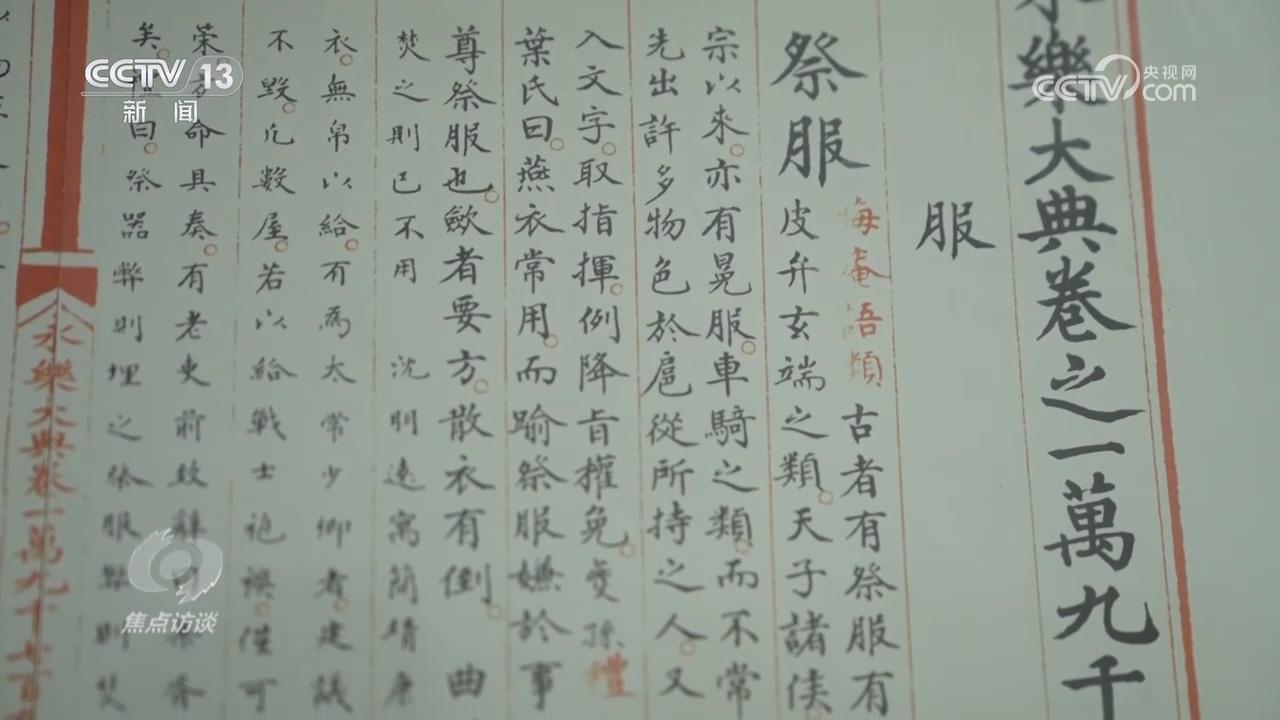 CCTV 13
新闻
央视网
CCTV com
永樂大典卷之一萬九千
服
祭服
晦菴語類 古者有祭服有
皮弁玄端之類。天子諸侯
宗以來。亦有冕服。車騎之類。而不常
先出許多物色於扈從所持之人。又
入文字。取指揮。例降旨權免。孫 禮
葉氏曰。燕衣常用。而踰祭服嫌於事
尊祭服也。歛者要方。散衣有倒。 曲
焚之則已不用 沈明遠寓簡靖康
衣。無帛以給。有為太常少卿者。建議
不毀。凡數屋。若以給戰士袍襖。僅可
命具奏。有老吏前致辭曰
矣。禮曰。祭器弊則埋之祭服弊則焚
永樂大典卷一萬九千七百九
焦点访谈